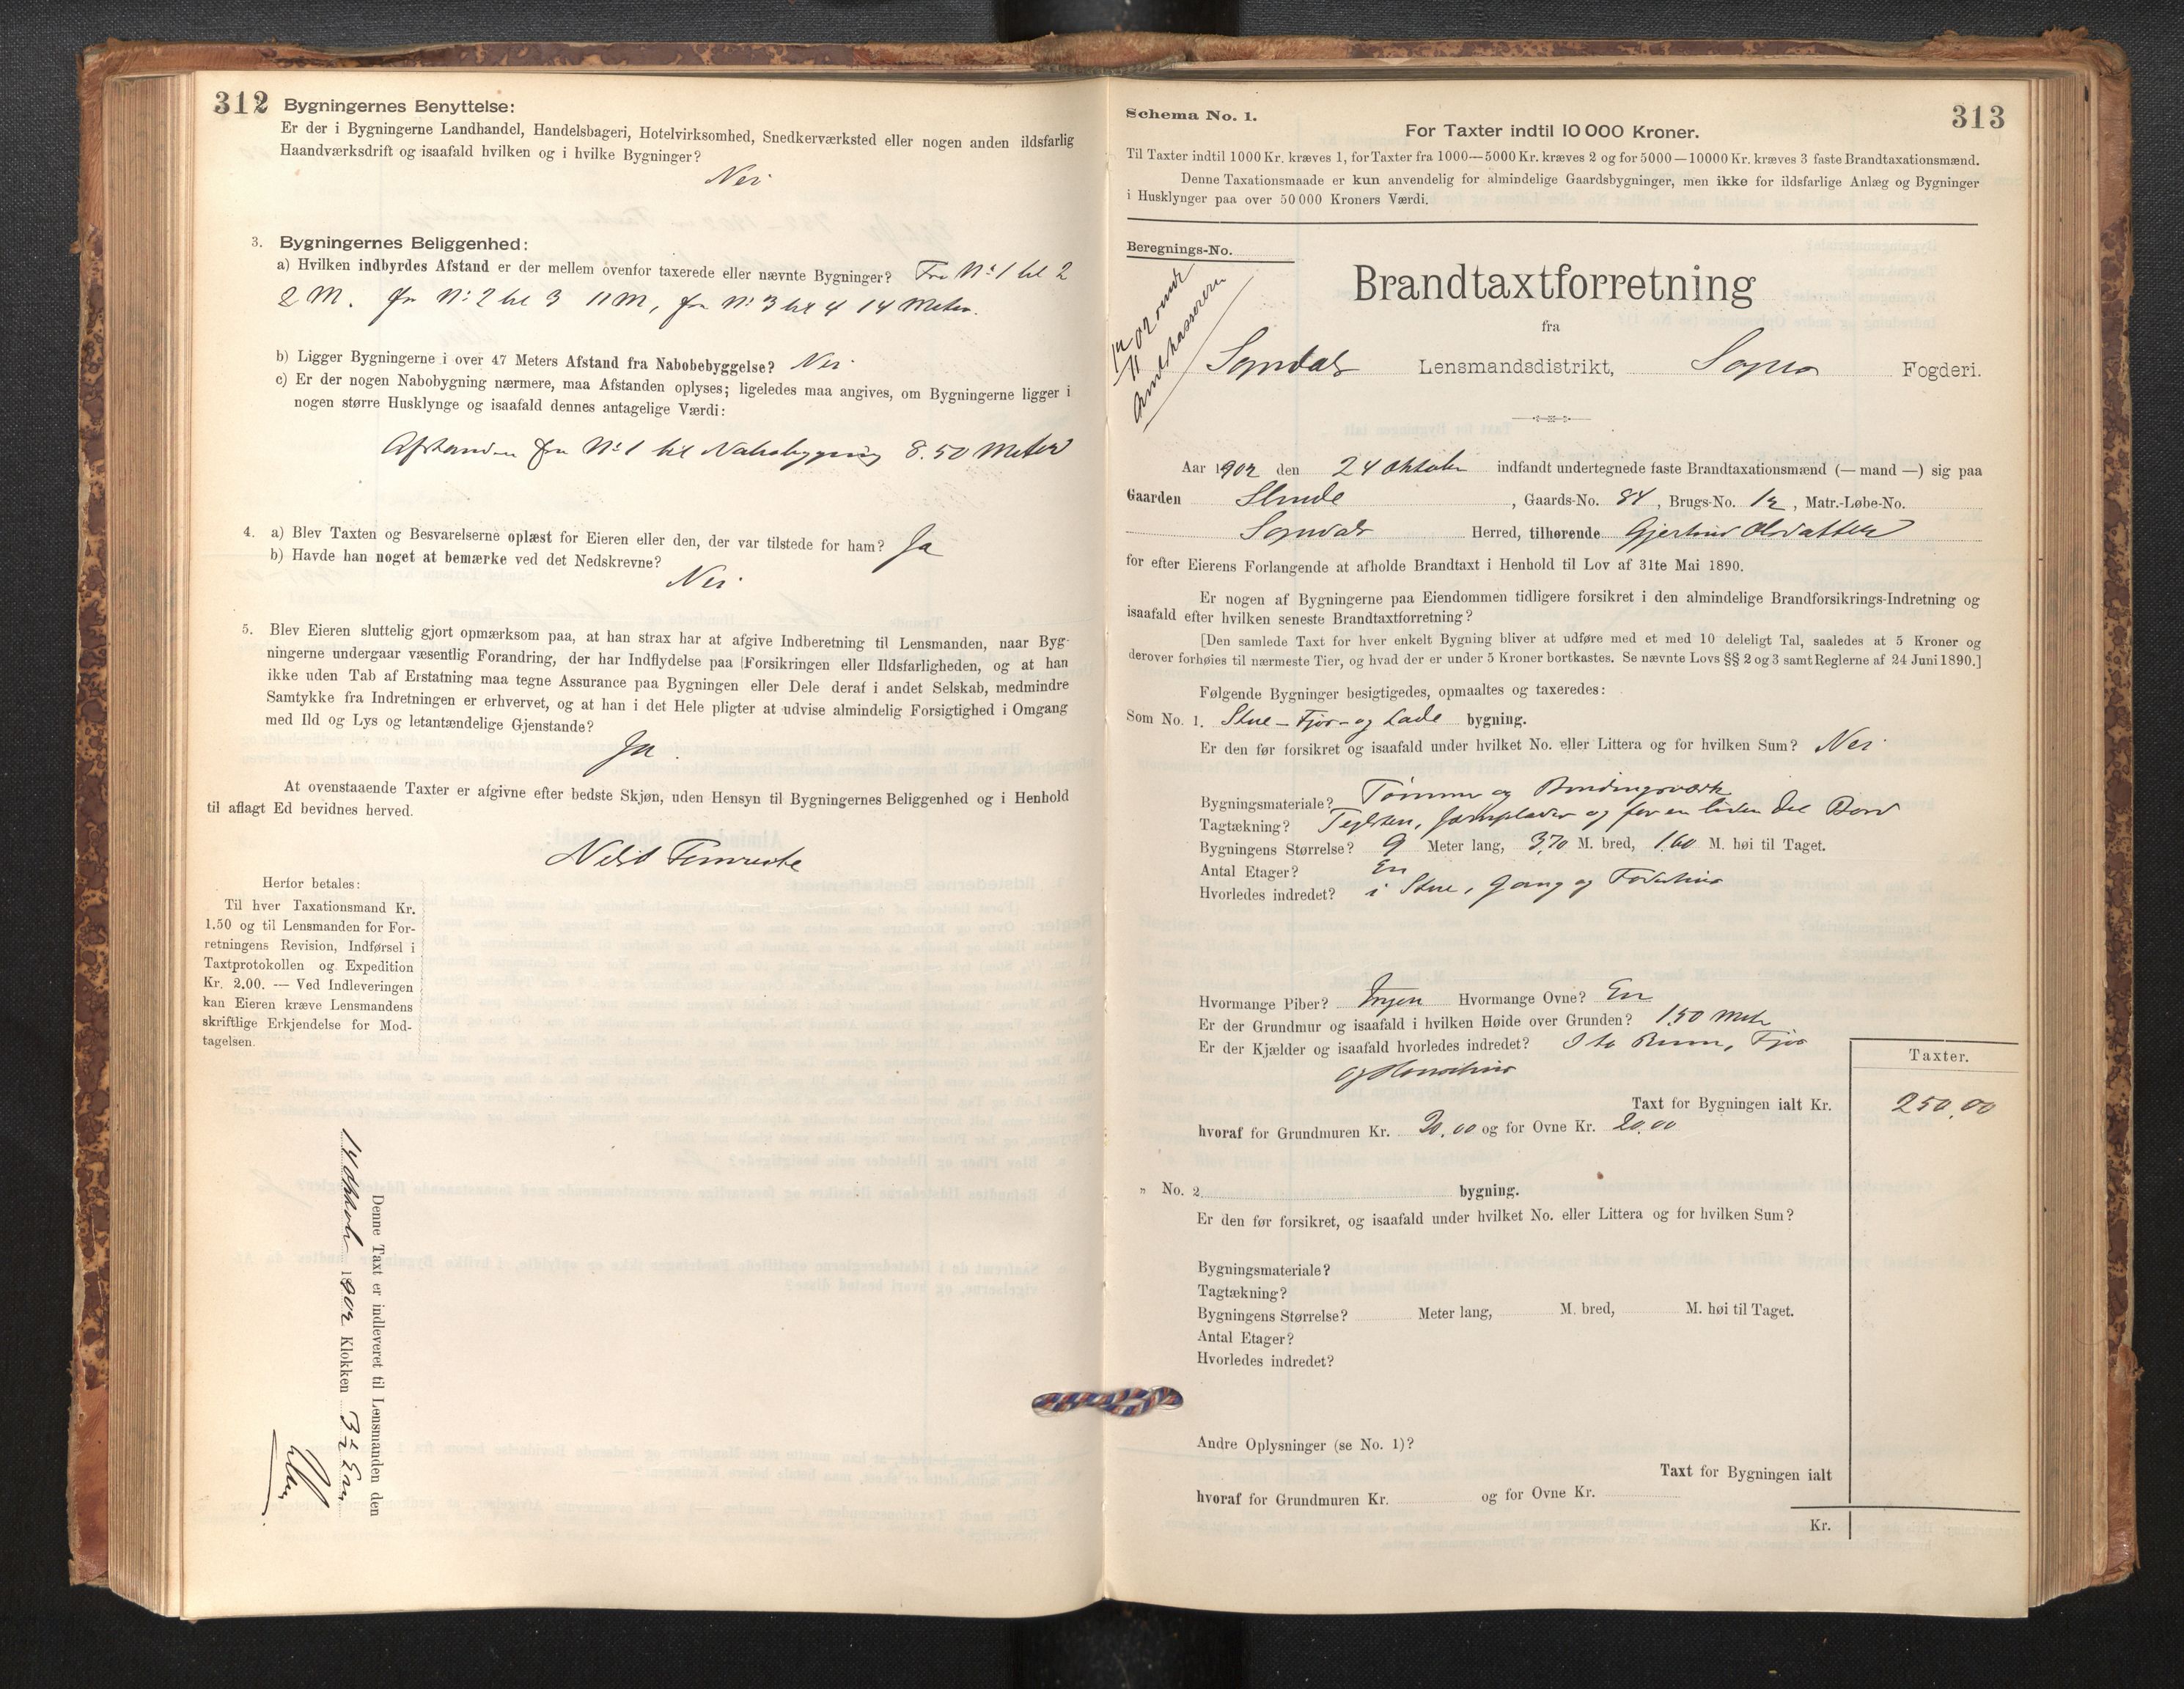 312
Bygningernes Benyttelse:
Er der i Bygningerne Landhandel, Handelsbageri, Hotelvirksomhed, Snedkerværksted eller nogen anden ildsfarlig
Haandværksdrift og isaafald hvilken og i hvilke Bygninger?
Nei
3. Bygningernes Beliggenhed:
a) Hvilken indbyrdes Afstand er der mellem ovenfor taxerede eller nævnte Bygninger? Fra No 1 til 2
2 M. fra No 2 til 3 11 M, fra No 3 til 4 14 Meter.
b) Ligger Bygningerne i over 47 Meters Afstand fra Nabobebyggelse? Nei
c) Er der nogen Nabobygning nærmere, maa Afstanden oplyses; ligeledes maa angives, om Bygningerne ligger i
nogen større Husklynge og isaafald dennes antagelige Værdi:
Afstanden fra No 1 til Nabobygning 8.50 Meter
4. a) Blev Taxten og Besvarelserne oplæst for Eieren eller den, der var tilstede for ham? Ja
b) Havde han noget at bemærke ved det Nedskrevne?
Nei
5. Blev Eieren sluttelig gjort opmærksom paa, at han strax har at afgive Indberetning til Lensmanden, naar Byg-
ningerne undergaar væsentlig Forandring, der har Indflydelse paa Forsikringen eller Ildsfarligheden, og at han
ikke uden Tab af Erstatning maa tegne Assurance paa Bygningen eller Dele deraf i andet Selskab, medmindre
Samtykke fra Indretningen er erhvervet, og at han i det Hele pligter at udvise almindelig Forsigtighed i Omgang
med Ild og Lys og letantændelige Gjenstande?
Ja.
At ovenstaaende Taxter er afgivne efter bedste Skjøn, uden Hensyn til Bygningernes Beliggenhed og i Henhold
til aflagt Ed bevidnes herved.
Herfor betales:
Til hver Taxationsmand Kr.
1.50 og til Lensmanden for For-
retningens Revision, Indførsel i
Taxtprotokollen og Expedition
Kr. 2.00. — Ved Indleveringen
kan Eieren kræve Lensmandens
skriftlige Erkjendelse for Mod-
tagelsen.
Denne Taxt er indleveret til Lensmanden den
14 Oktober 1902 Klokken 3½ Em.
313
Schema No. 1.
For Taxter indtil 10 000 Kroner.
Til Taxter indtil 1000 Kr. kræves 1, for Taxter fra 1000—5000 Kr. kræves 2 og for 5000—10000 Kr. kræves 3 faste Brandtaxationsmænd.
Denne Taxationsmaade er kun anvendelig for almindelige Gaardsbygninger, men ikke for ildsfarlige Anlæg og Bygninger
i Husklynger paa over 50 000 Kroners Værdi.
Beregnings-No.
Brandtaxtforretning
fra
Sogndals Lensmandsdistrikt, Sogns Fogderi.
Aar 1902 den 24 Oktober indfandt undertegnede faste Brandtaxationsmænd (— mand —) sig paa
Gaarden Stende, Gaards-No. 84, Brugs-No. 12, Matr.-Løbe-No.
Sogndals Herred, tilhørende Gjertrud Olsdatter
for efter Eierens Forlangende at afholde Brandtaxt i Henhold til Lov af 31te Mai 1890.
Er nogen af Bygningerne paa Eiendommen tidligere forsikret i den almindelige Brandforsikrings-Indretning og
isaafald efter hvilken seneste Brandtaxtforretning?
[Den samlede Taxt for hver enkelt Bygning bliver at udføre med et med 10 deleligt Tal, saaledes at 5 Kroner og
derover forhøies til nærmeste Tier, og hvad der er under 5 Kroner bortkastes. Se nævnte Lovs §§ 2 og 3 samt Reglerne af 24 Juni 1890.]
Følgende Bygninger besigtigedes, opmaaltes og taxeredes:
Som No. 1. Stue- Fjøs- og Lade bygning.
Er den før forsikret og isaafald under hvilket No. eller Littera og for hvilken Sum? Nei
Bygningsmateriale? Tømmer og Bindingsværk
Tagtækning? Teglsten, Jernplader og for en liden Del Bord
Bygningens Størrelse? 9 Meter lang, 3,70 M. bred, 1.60 M. høi til Taget.
Antal Etager? En
Hvorledes indredet? i Stue, Gang og Foderhus
Hvormange Piber? Ingen Hvormange Ovne? En
Er der Grundmur og isaafald i hvilken Høide over Grunden? 1.50 Meter
Er der Kjælder og isaafald hvorledes indredet? I to Rum, Fjøs
Taxter.
Taxt for Bygningen ialt Kr. 250.00
hvoraf for Grundmuren Kr. 20.00 og for Ovne Kr. 20.00
„ No. 2 bygning.
Er den før forsikret, og isaafald under hvilket No. eller Littera og for hvilken Sum?
Bygningsmateriale?
Tagtækning?
Bygningens Størrelse? Meter lang, M. bred, M. høi til Taget.
Antal Etager?
Hvorledes indredet?
Andre Oplysninger (se No. 1)?
Taxt for Bygningen ialt
hvoraf for Grundmuren Kr. og for Ovne Kr.
Kr.